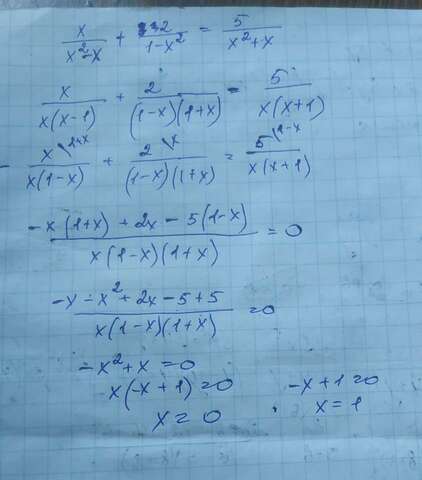 x/(x²-x) + 2/(1-x²) = 5/(x²+x)
x/(x(x-1)) + 2/((1-x)(1+x)) = 5/(x(x+1))
- x\1+x/(x(1-x)) + 2\x/((1-x)(1+x)) = 5\1-x/(x(x+1))
(-x(1+x) + 2x - 5(1-x))/(x(1-x)(1+x)) = 0
(-x - x² + 2x - 5 + 5)/(x(1-x)(1+x)) = 0
-x² + x = 0
x(-x+1) = 0 -x+1=0
x = 0 x = 1